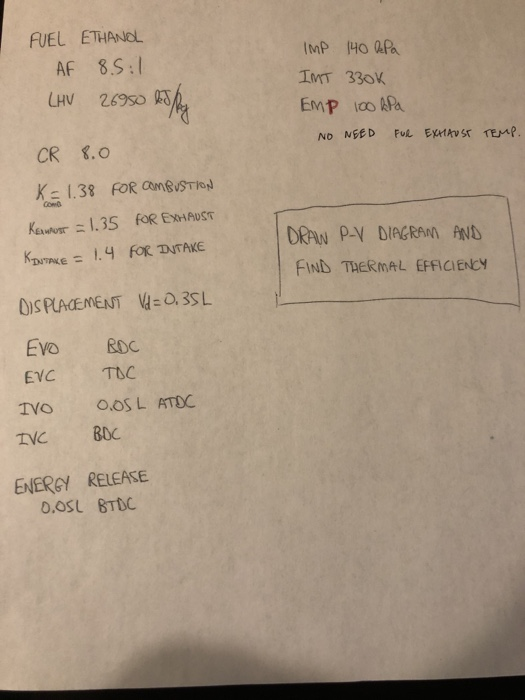 FUEL ETHANOL
AF 8.5:1
LHV 26950 kJ/kg
CR 8.0
K COMB = 1.38 FOR COMBUSTION
K EXHAUST = 1.35 FOR EXHAUST
K INTAKE = 1.4 FOR INTAKE
DISPLACEMENT Vd = 0.35L
EVO BDC
EVC TDC
IVO 0.05L ATDC
IVC BDC
ENERGY RELEASE
0.05L BTDC
IMP 140 kPa
IMT 330K
EMP 100 kPa
NO NEED FUR EXHAUST TEMP.
DRAW P-V DIAGRAM AND
FIND THERMAL EFFICIENCY